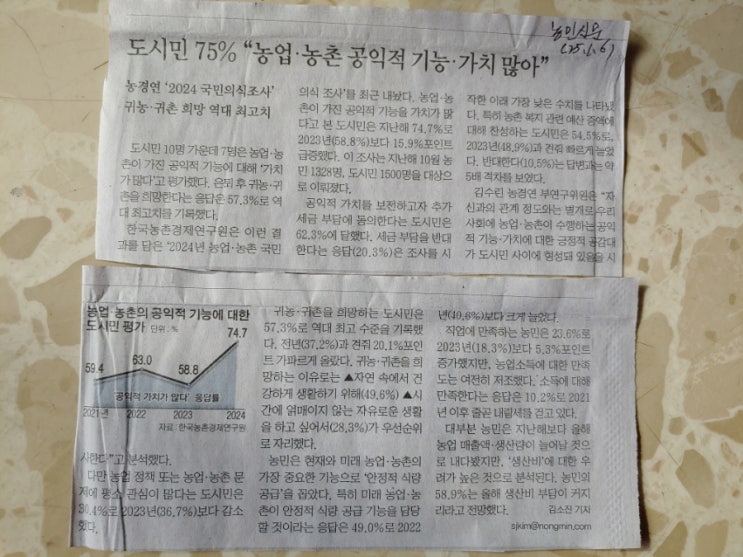 농민신문
('25.1.6)
도시민 75% “농업·농촌 공익적 기능·가치 많아”
농경연 ‘2024 국민의식조사’
귀농·귀촌 희망 역대 최고치
도시민 10명 가운데 7명은 농업·농
촌이 가진 공익적 기능에 대해 ‘가치
가 많다’고 평가했다. 은퇴 후 귀농·귀
촌을 희망한다는 응답은 57.3%로 역
대 최고치를 기록했다.
한국농촌경제연구원은 이런 결
과를 담은 ‘2024년 농업·농촌 국민
의식 조사’를 최근 내놨다. 농업·농
촌이 가진 공익적 기능을 가치가 많
다고 본 도시민은 지난해 74.7%로
2023년(58.8%)보다 15.9%포인트
급증했다. 이 조사는 지난해 10월 농
민 1328명, 도시민 1500명을 대상으
로 이뤄졌다.
공익적 가치를 보전하고자 추가
세금 부담에 동의한다는 도시민은
62.3%에 달했다. 세금 부담을 반대
한다는 응답(20.3%)은 조사를 시
작한 이래 가장 낮은 수치를 나타냈
다. 특히 농촌 복지 관련 예산 증액에
대해 찬성하는 도시민은 54.5%로,
2023년(48.9%)과 견줘 빠르게 늘었
다. 반대한다(10.5%)는 답변과는 약
5배 격차를 보였다.
김수린 농경연 부연구위원은 “자
신과의 관계 정도와는 별개로 우리
사회에 농업·농촌이 수행하는 공익
적 기능·가치에 대한 긍정적 공감대
가 도시민 사이에 형성돼 있음을 시
농업·농촌의 공익적 기능에 대한
도시민 평가 단위:%
74.7
63.0
59.4
58.8
‘공익적 가치가 많다’ 응답률
2021년 2022 2023 2024
자료:한국농촌경제연구원
사한다”고 분석했다.
다만 농업 정책 또는 농업·농촌 문
제에 평소 관심이 많다는 도시민은
30.4%로 2023년(36.7%)보다 감소
했다.
귀농·귀촌을 희망하는 도시민은
57.3%로 역대 최고 수준을 기록했
다. 전년(37.2%)과 견줘 20.1%포인
트 가파르게 올랐다. 귀농·귀촌을 희
망하는 이유로는 ▲자연 속에서 건
강하게 생활하기 위해(49.6%) ▲시
간에 얽매이지 않는 자유로운 생활
을 하고 싶어서(28.3%)가 우선순위
로 자리했다.
농민은 현재와 미래 농업·농촌의
가장 중요한 기능으로 ‘안정적 식량
공급’을 꼽았다. 특히 미래 농업·농
촌이 안정적 식량 공급 기능을 담당
할 것이라는 응답은 49.0%로 2022
년(40.6%)보다 크게 늘었다.
직업에 만족하는 농민은 23.6%로
2023년(18.3%)보다 5.3%포인트
증가했지만, 농업소득에 대한 만족
도는 여전히 저조했다. 소득에 대해
만족한다는 응답은 10.2%로 2021
년 이후 줄곧 내림세를 걷고 있다.
대부분 농민은 지난해보다 올해
농업 매출액·생산량이 늘어날 것으
로 내다봤지만, ‘생산비’에 대한 우
려가 높은 것으로 분석된다. 농민의
58.9%는 올해 생산비 부담이 커지
리라고 전망했다. 김소진 기자
sjkim@nongmin.com